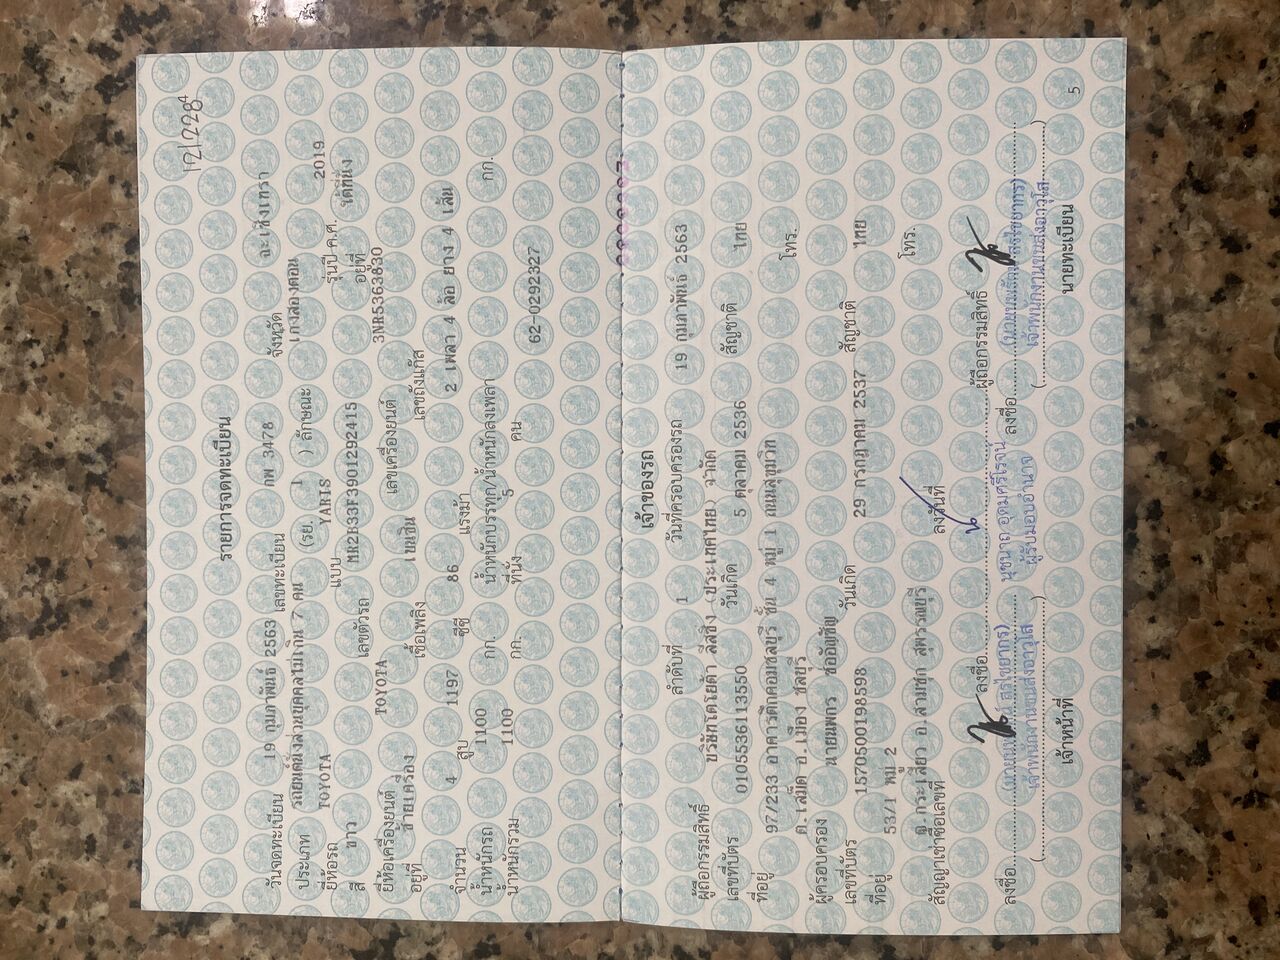 12/228
รายการจดทะเบียน
วันจดทะเบียน 19 กุมภาพันธ์ 2563 เลขทะเบียน กพ 3478 จังหวัด ฉะเชิงเทรา
ประเภท รถยนต์นั่งส่วนบุคคลไม่เกิน 7 คน (รย. 1 ) ลักษณะ เก๋งสองตอน
ยี่ห้อรถ TOYOTA แบบ YARIS รุ่นปี ค.ศ. 2019
สี ขาว เลขตัวรถ MR2B33F3901292415 อยู่ที่ ใต้ที่นั่ง
ยี่ห้อเครื่องยนต์ TOYOTA เลขเครื่องยนต์ 3NR5363830
อยู่ที่ ซ้ายเครื่อง เชื้อเพลิง เบนซิน เลขถังแก๊ส
จำนวน 4 สูบ 1197 ซีซี 86 แรงม้า 2 เพลา 4 ล้อ ยาง 4 เส้น
น้ำหนักรถ 1100 กก. น้ำหนักบรรทุก/น้ำหนักลงเพลา กก.
น้ำหนักรวม 1100 กก. ที่นั่ง 5 คน 62-0292327
เจ้าของรถ
ลำดับที่ 1 วันที่ครอบครองรถ 19 กุมภาพันธ์ 2563
ผู้ถือกรรมสิทธิ์ บริษัทโตโยต้า ลีสซิ่ง (ประเทศไทย จำกัด
เลขที่บัตร 0105536113550 วันเกิด 5 ตุลาคม 2536 สัญชาติ ไทย
ที่อยู่ 97/233 อาคารติคอมชลบุรี ชั้น 4 หมู่ 1 ถนนสุขุมวิท
ต.เสม็ด อ.เมือง ชลบุรี โทร.
ผู้ครอบครอง นายนพกร
เลขที่บัตร 1570500198598 วันเกิด 29 กรกฎาคม 2537 สัญชาติ ไทย
ที่อยู่ 53/1 หมู่ 2
ต.กระเสียว อ.สามชุก สุพรรณบุรี โทร.
สัญญาเช่าซื้อเลขที่ ลงวันที่
ลงชื่อ ผู้ถือกรรมสิทธิ์
ผู้รับมอบอำนาจ
ลงชื่อ ลงชื่อ
เจ้าพนักงานขนส่งอาวุโส เจ้าพนักงานขนส่งอาวุโส
เจ้าหน้าที่ นายทะเบียน
5